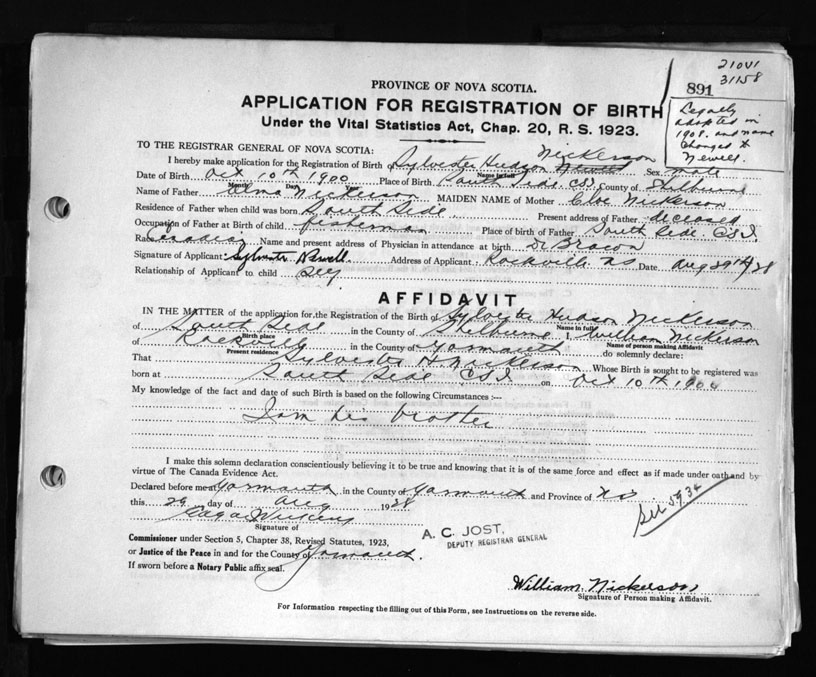 21001
31158
891
Legally
adopted in
1908. and name
changed to
Newell.
PROVINCE OF NOVA SCOTIA.
APPLICATION FOR REGISTRATION OF BIRTH
Under the Vital Statistics Act, Chap. 20, R. S. 1923.
TO THE REGISTRAR GENERAL OF NOVA SCOTIA:
Nickerson
I hereby make application for the Registration of Birth of Sylvester Hudson Sex male
Name in full
Date of Birth Oct 10th 1900 Place of Birth South Side CSI County of Shelburne
Month Day
Name of Father Nickerson MAIDEN NAME of Mother Cloe Nickerson
Residence of Father when child was born South Side Present address of Father deceased
Occupation of Father at Birth of child fisherman Place of birth of Father South Side CSI
Race Canadian Name and present address of Physician in attendance at birth Dr
Signature of Applicant Sylvester Newell Address of Applicant Rockville NS Date Aug 29th/28
Relationship of Applicant to child Self
AFFIDAVIT
IN THE MATTER of the application for the Registration of the Birth of Sylvester Hudson Nickerson
Name in full
of South Side in the County of Shelburne I, William Nickerson
Birth place Name of person making Affidavit
of Rockville in the County of Yarmouth do solemnly declare:
Present residence
That Sylvester H. Nickerson Whose Birth is sought to be registered was
born at South Side CSI on Oct 10th 1900
My knowledge of the fact and date of such Birth is based on the following Circumstances :—
I am his brother
I make this solemn declaration conscientiously believing it to be true and knowing that it is of the same force and effect as if made under oath and by
virtue of The Canada Evidence Act.
Declared before me at Yarmouth in the County of Yarmouth and Province of NS
this 29 day of Aug 1928
Signature of
A. C. JOST,
DEPUTY REGISTRAR GENERAL
Commissioner under Section 5, Chapter 38, Revised Statutes, 1923,
or Justice of the Peace in and for the County of Yarmouth.
If sworn before a Notary Public affix seal.
William Nickerson
Signature of Person making Affidavit.
For Information respecting the filling out of this Form, see Instructions on the reverse side.